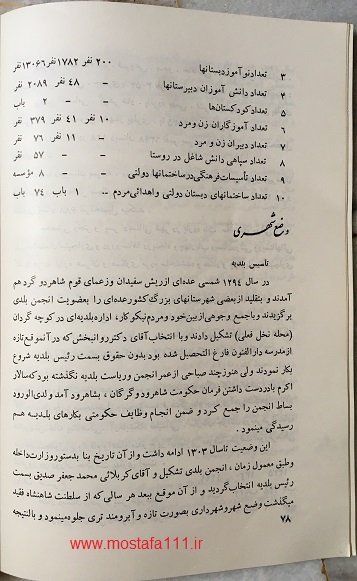 ۲۰۰ نفر ۱۷۸۲ نفر ۱۳۰۶۶ نفر
۳ تعداد نوآموز دبستانها
۴ تعداد دانش آموزان دبیرستانها – ۴۸ نفر ۲۰۸۹ نفر
۵ تعداد کودکستان‌ها – – ۲ باب
۶ تعداد آموزگاران زن و مرد ۱۰ نفر ۴۱ نفر ۳۷۹ نفر
۷ تعداد دبیران زن و مرد – ۱۱ نفر ۷۶ نفر
۸ تعداد سپاهی دانش شاغل در روستا – – ۵۷ نفر
۹ تعداد تأسیسات فرهنگی در ساختمانها دولتی – – ۸ مؤسسه
۱۰ تعداد ساختمانهای دبستان دولتی و اهدائی مردم – ۱ باب ۷۴ باب
وضع شهری
تأسیس بلدیه
در سال ۱۲۹۴ شمسی عده‌ای از ریش سفیدان و زعمای قوم شاهرود گرد هم
آمدند و بتقلید از بعضی شهرستانهای بزرگ کشور عده‌ای را بعضویت انجمن بلدی
برگزیدند و با جمع وجوهی از بین خود و مردم نیکوکار، اداره بلدیه‌ای در کوچه گردان
(محله نخل فعلی) تشکیل دادند و با انتخاب آقای دکتر روانبخش که در آنموقع تازه
از مدرسه دارالفنون فارغ التحصیل شده بود بدون حقوق بسمت رئیس بلدیه شروع
بکار نمودند ولی هنوز چند صباحی از عمر انجمن و ریاست بلدیه نگذشته بود که سالار
اکرم با در دست داشتن فرمان حکومت شاهرود و گرگان، بشاهرود آمد و لدی‌الورود
بساط انجمن را جمع کرد و ضمن انجام وظایف حکومتی بکارهای بلدیه هم
رسیدگی مینمود.
این وضعیت تا سال ۱۳۰۳ ادامه داشت و از آن تاریخ بنا بدستور وزارت داخله
و طبق معمول زمان، انجمن بلدی تشکیل و آقای کربلائی محمد جعفر صدیق بسمت
رئیس بلدیه انتخاب گردید و از آن موقع ببعد هر سالی که از سلطنت شاهنشاه فقید
میگذشت وضع شهر و شهرداری بصورت تازه و آبرومند تری جلوه مینمود و بالنتیجه
۷۸
www.mostafa111.ir